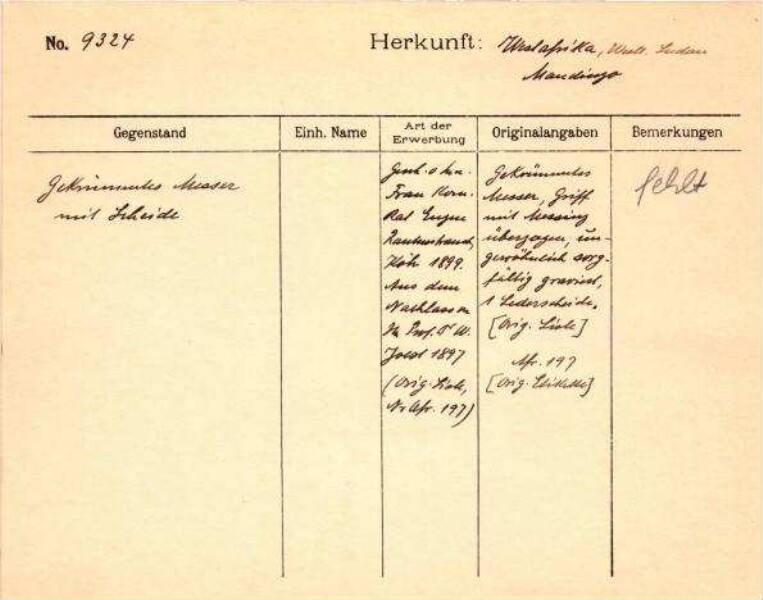 No. 9324
Herkunft: Westafrika, Westl. Sudan
Mandingo
Gegenstand
Einh. Name
Art der Erwerbung
Originalangaben
Bemerkungen
Gekrümmtes Messer
mit Scheide
Gesch. v.
Frau Kom.
Rat Eugen
Rautenstrauch,
Köln 1899.
Aus dem
Nachlass v.
H. Prof. Dr W.
Joest 1897
(Orig. Liste,
Nr Afr. 197)
Gekrümmtes
Messer, Griff
mit Messing
überzogen, un-
gewöhnlich sorg-
fältig graviert,
1 Lederscheide.
[Orig. Liste]
Afr. 197
[Orig. Etikette]
fehlt